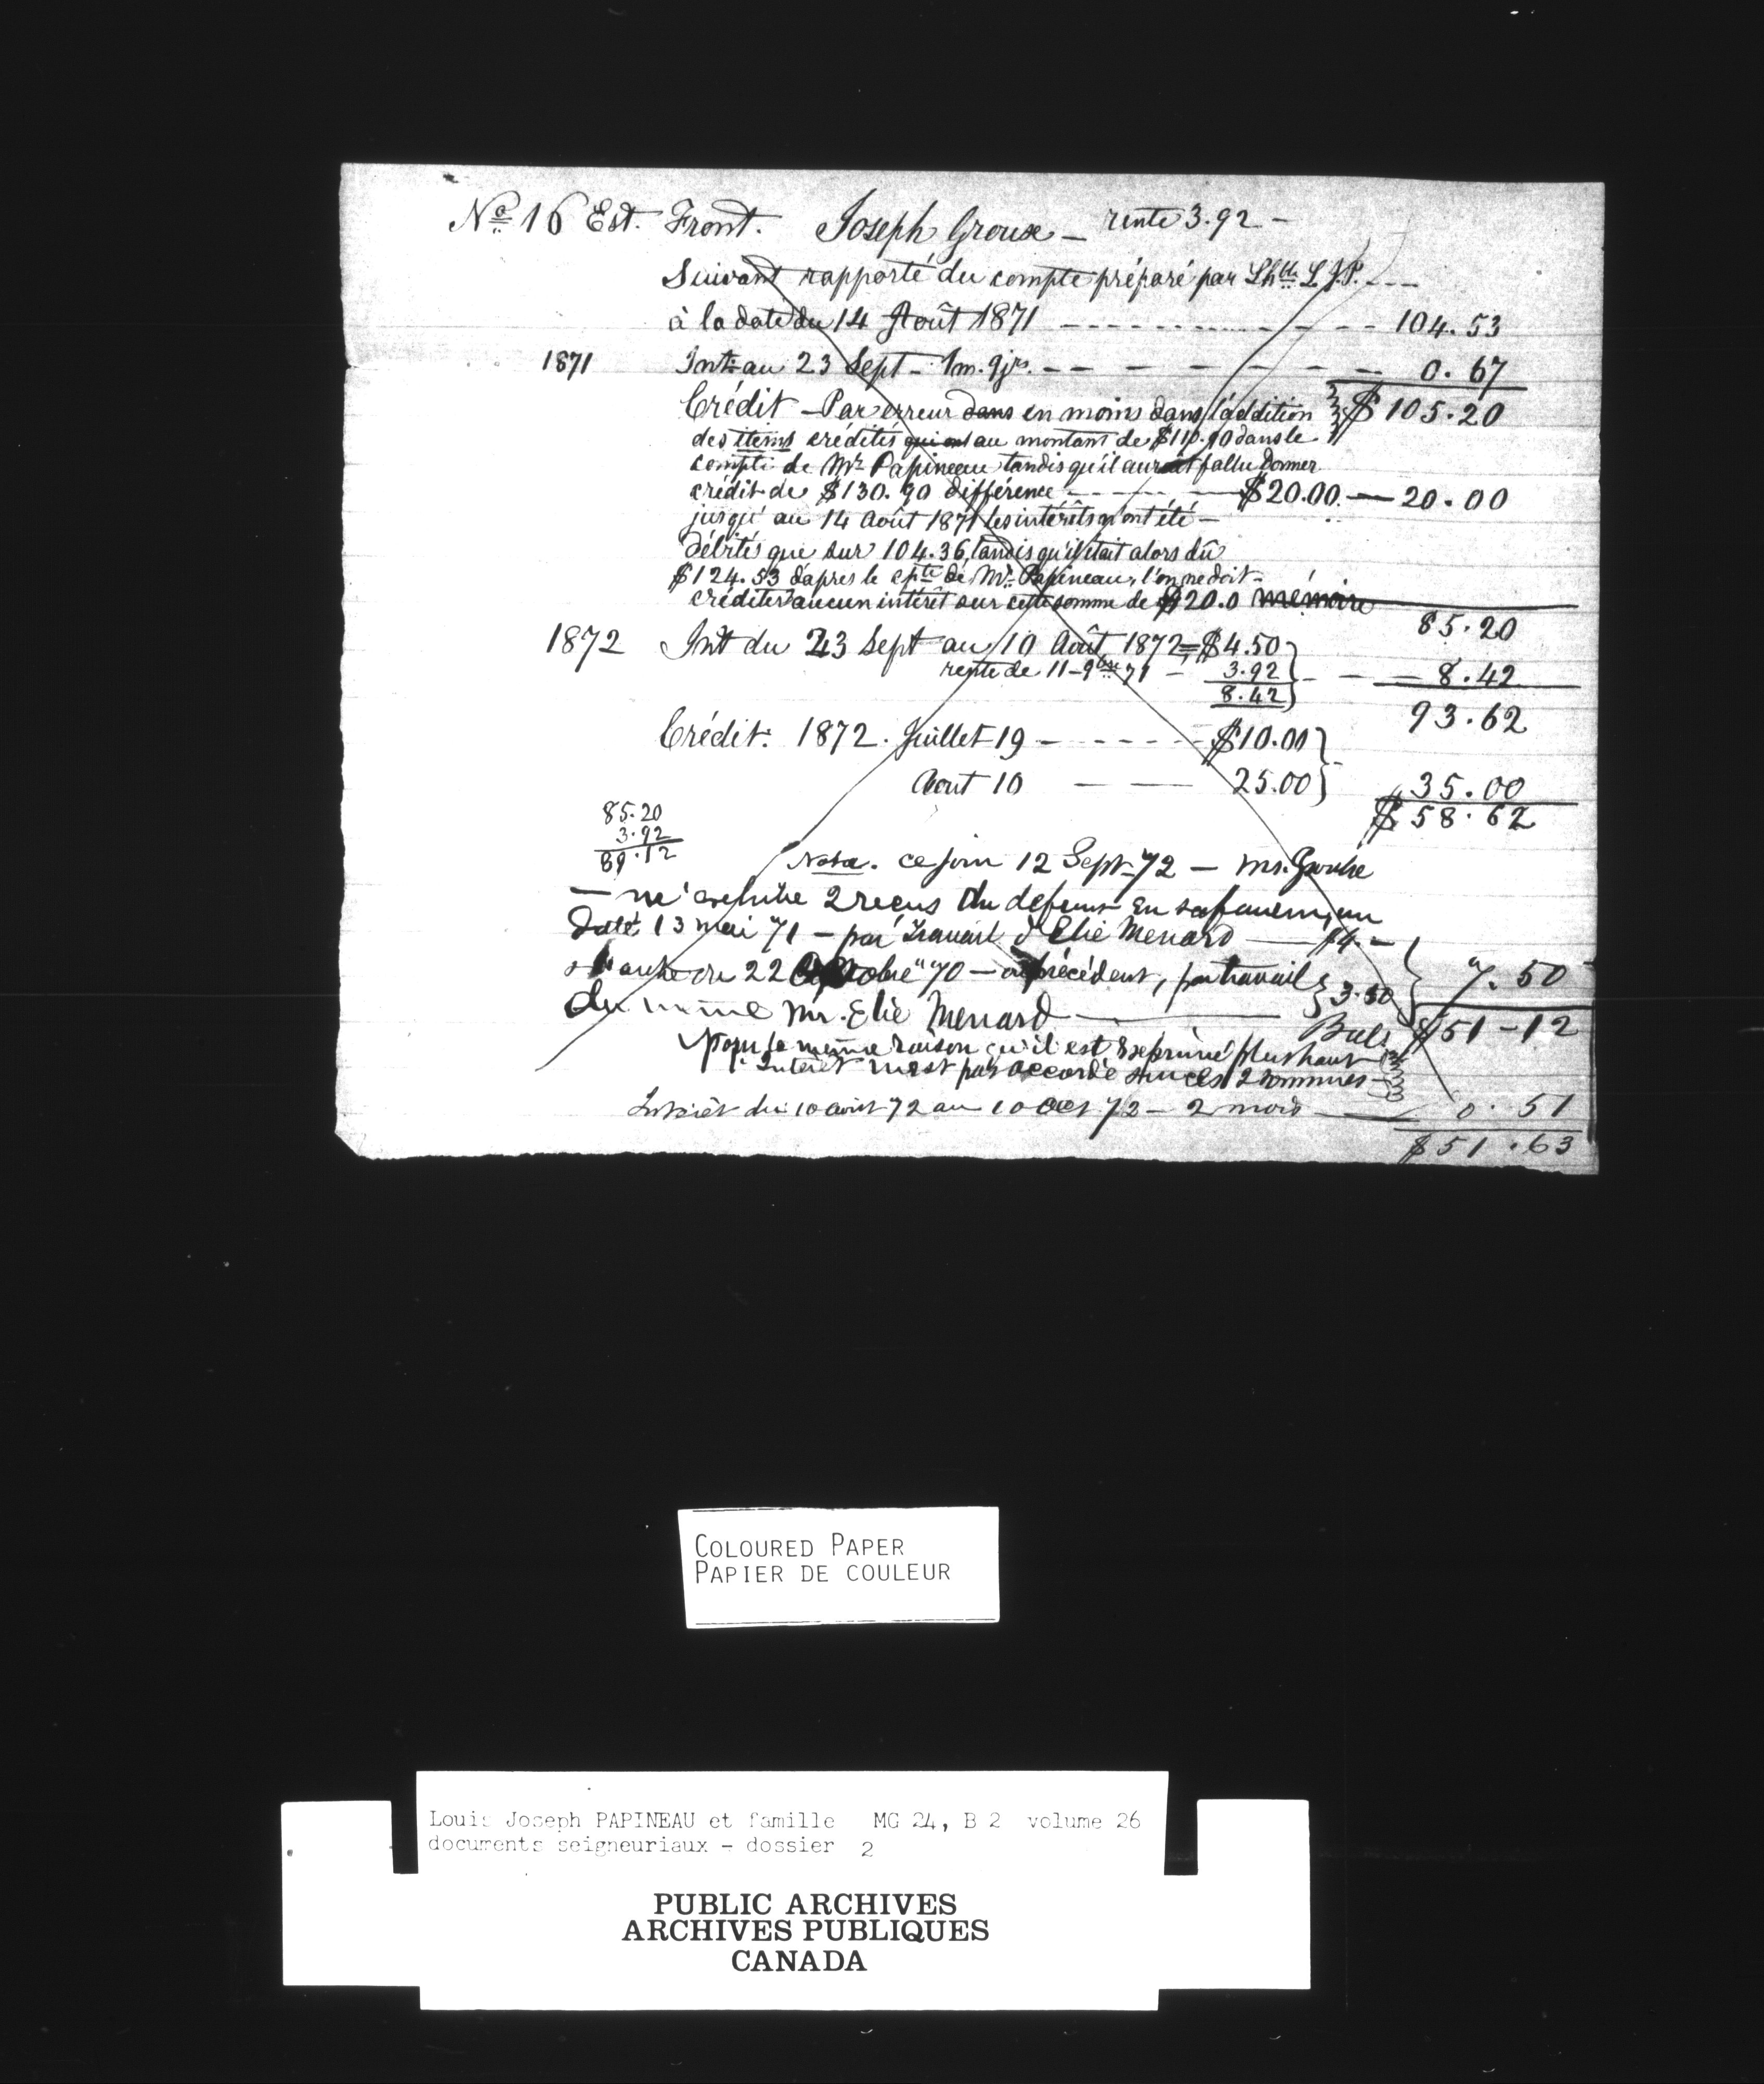 No 16 Est. Front. Joseph Groux — rente 3.92 —
Suivant rapporté du compte préparé par L.J.P. ---
à la date du 14 Août 1871 - - - - 104.53
1871 Int. au 23 Sept - 1m. 9 jrs. - - - - - 0.67
Crédit - Par erreur dans en moins dans l'addition $105.20
des items crédités qui ont au montant de $110.90 dans le
compte de Mr Papineau tandis qu'il aurait fallu donner
crédit de $130.90 différence - - - $20.00 — 20.00
jusqu'au 14 Août 1871 les intérêts n'ont été —
débités que sur 104.36, tandis qu'il était alors dû
$124.53 d'après le cpte de Mr. Papineau, l'on ne doit
créditer aucun intérêt sur cette somme de $20.0 mémoire
85.20
1872 Int du 23 Sept au 10 Août 1872 = $4.50
rente de 11 - 9bre 71 - 3.92 - - 8.42
8.42
93.62
Crédit: 1872. Juillet 19 - - - - - $10.00
Aout 10 — — 25.00 35.00
$58.62
85.20
3.92
89.12
Nota. ce jour 12 Sept 72 — Mr. Groulx
— 2 recus du defunt un
Daté 13 mai 71 — par travail d'Elie Menard — $4.-
& l'autre du 22 Octobre "70 — précédent, par travail 3.50 7.50
du même Mr. Elie Menard — Bal $51-12
Pour la même raison qu'il est exprimé plus haut
l'Intérêt n'est pas accordé sur ces 2 sommes —
Intérêt du 10 août 72 au 10 Oct 72 - 2 mois — 0.51
$51.63
COLOURED PAPER
PAPIER DE COULEUR
Louis Joseph PAPINEAU et famille MG 24, B 2 volume 26
documents seigneuriaux - dossier 2
PUBLIC ARCHIVES
ARCHIVES PUBLIQUES
CANADA